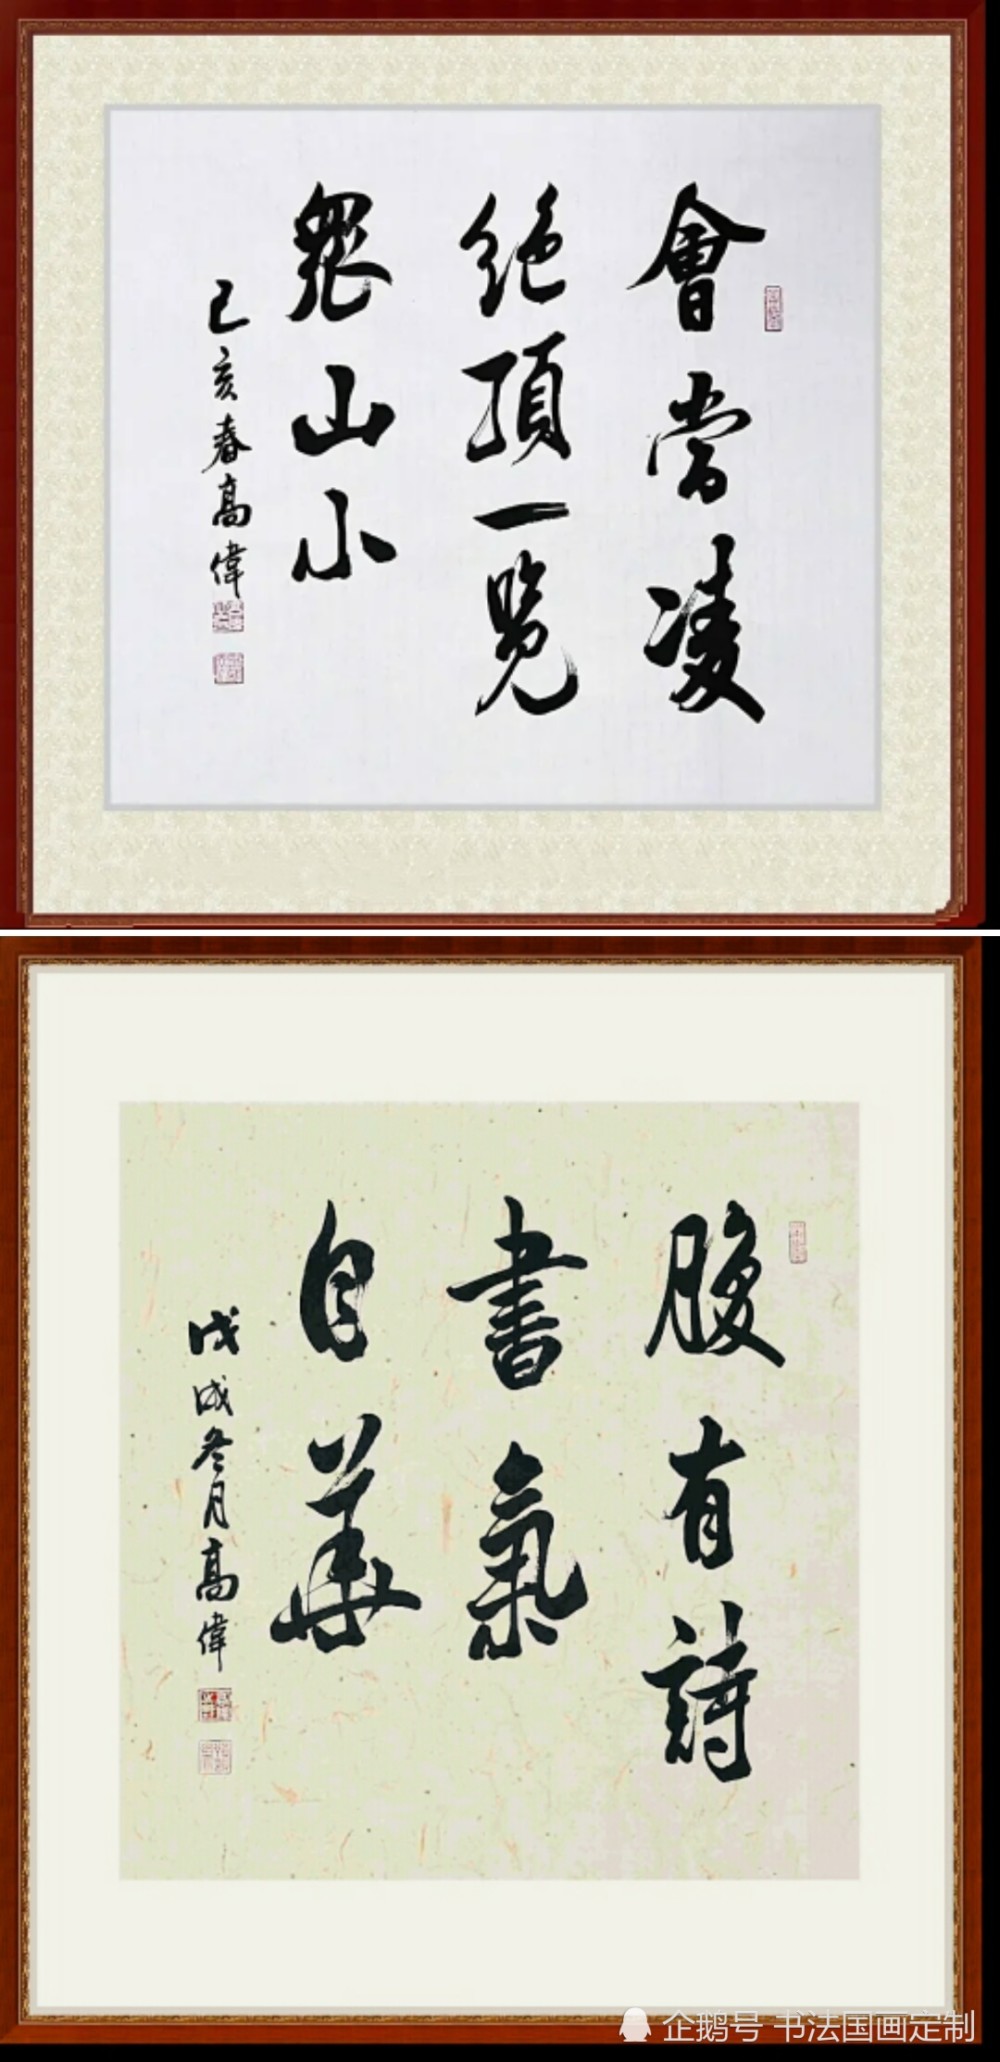 會當凌
絕頂一覽
眾山小
己亥春高偉
腹有詩
書氣
自華
戊戌冬月高偉
企鹅号 书法国画定制